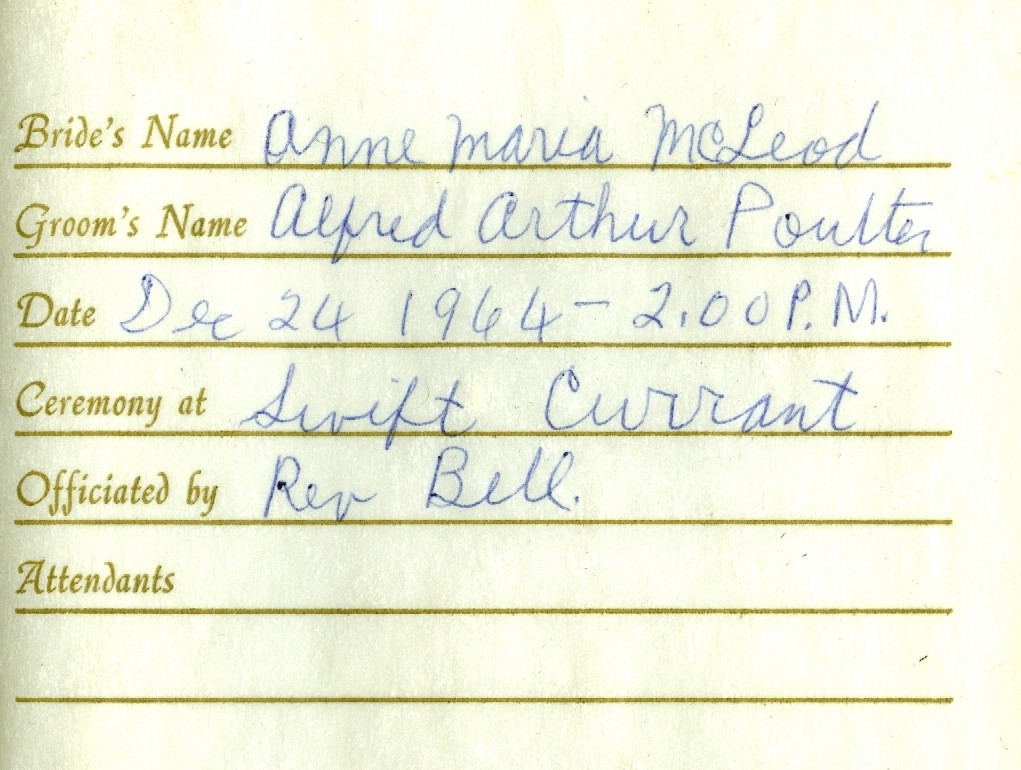 Bride's Name Anne Maria McLeod
Groom's Name Alfred Arthur Poulter
Date Dec 24 1964 - 2.00 P.M.
Ceremony at Swift Currant
Officiated by Rev Bell.
Attendants